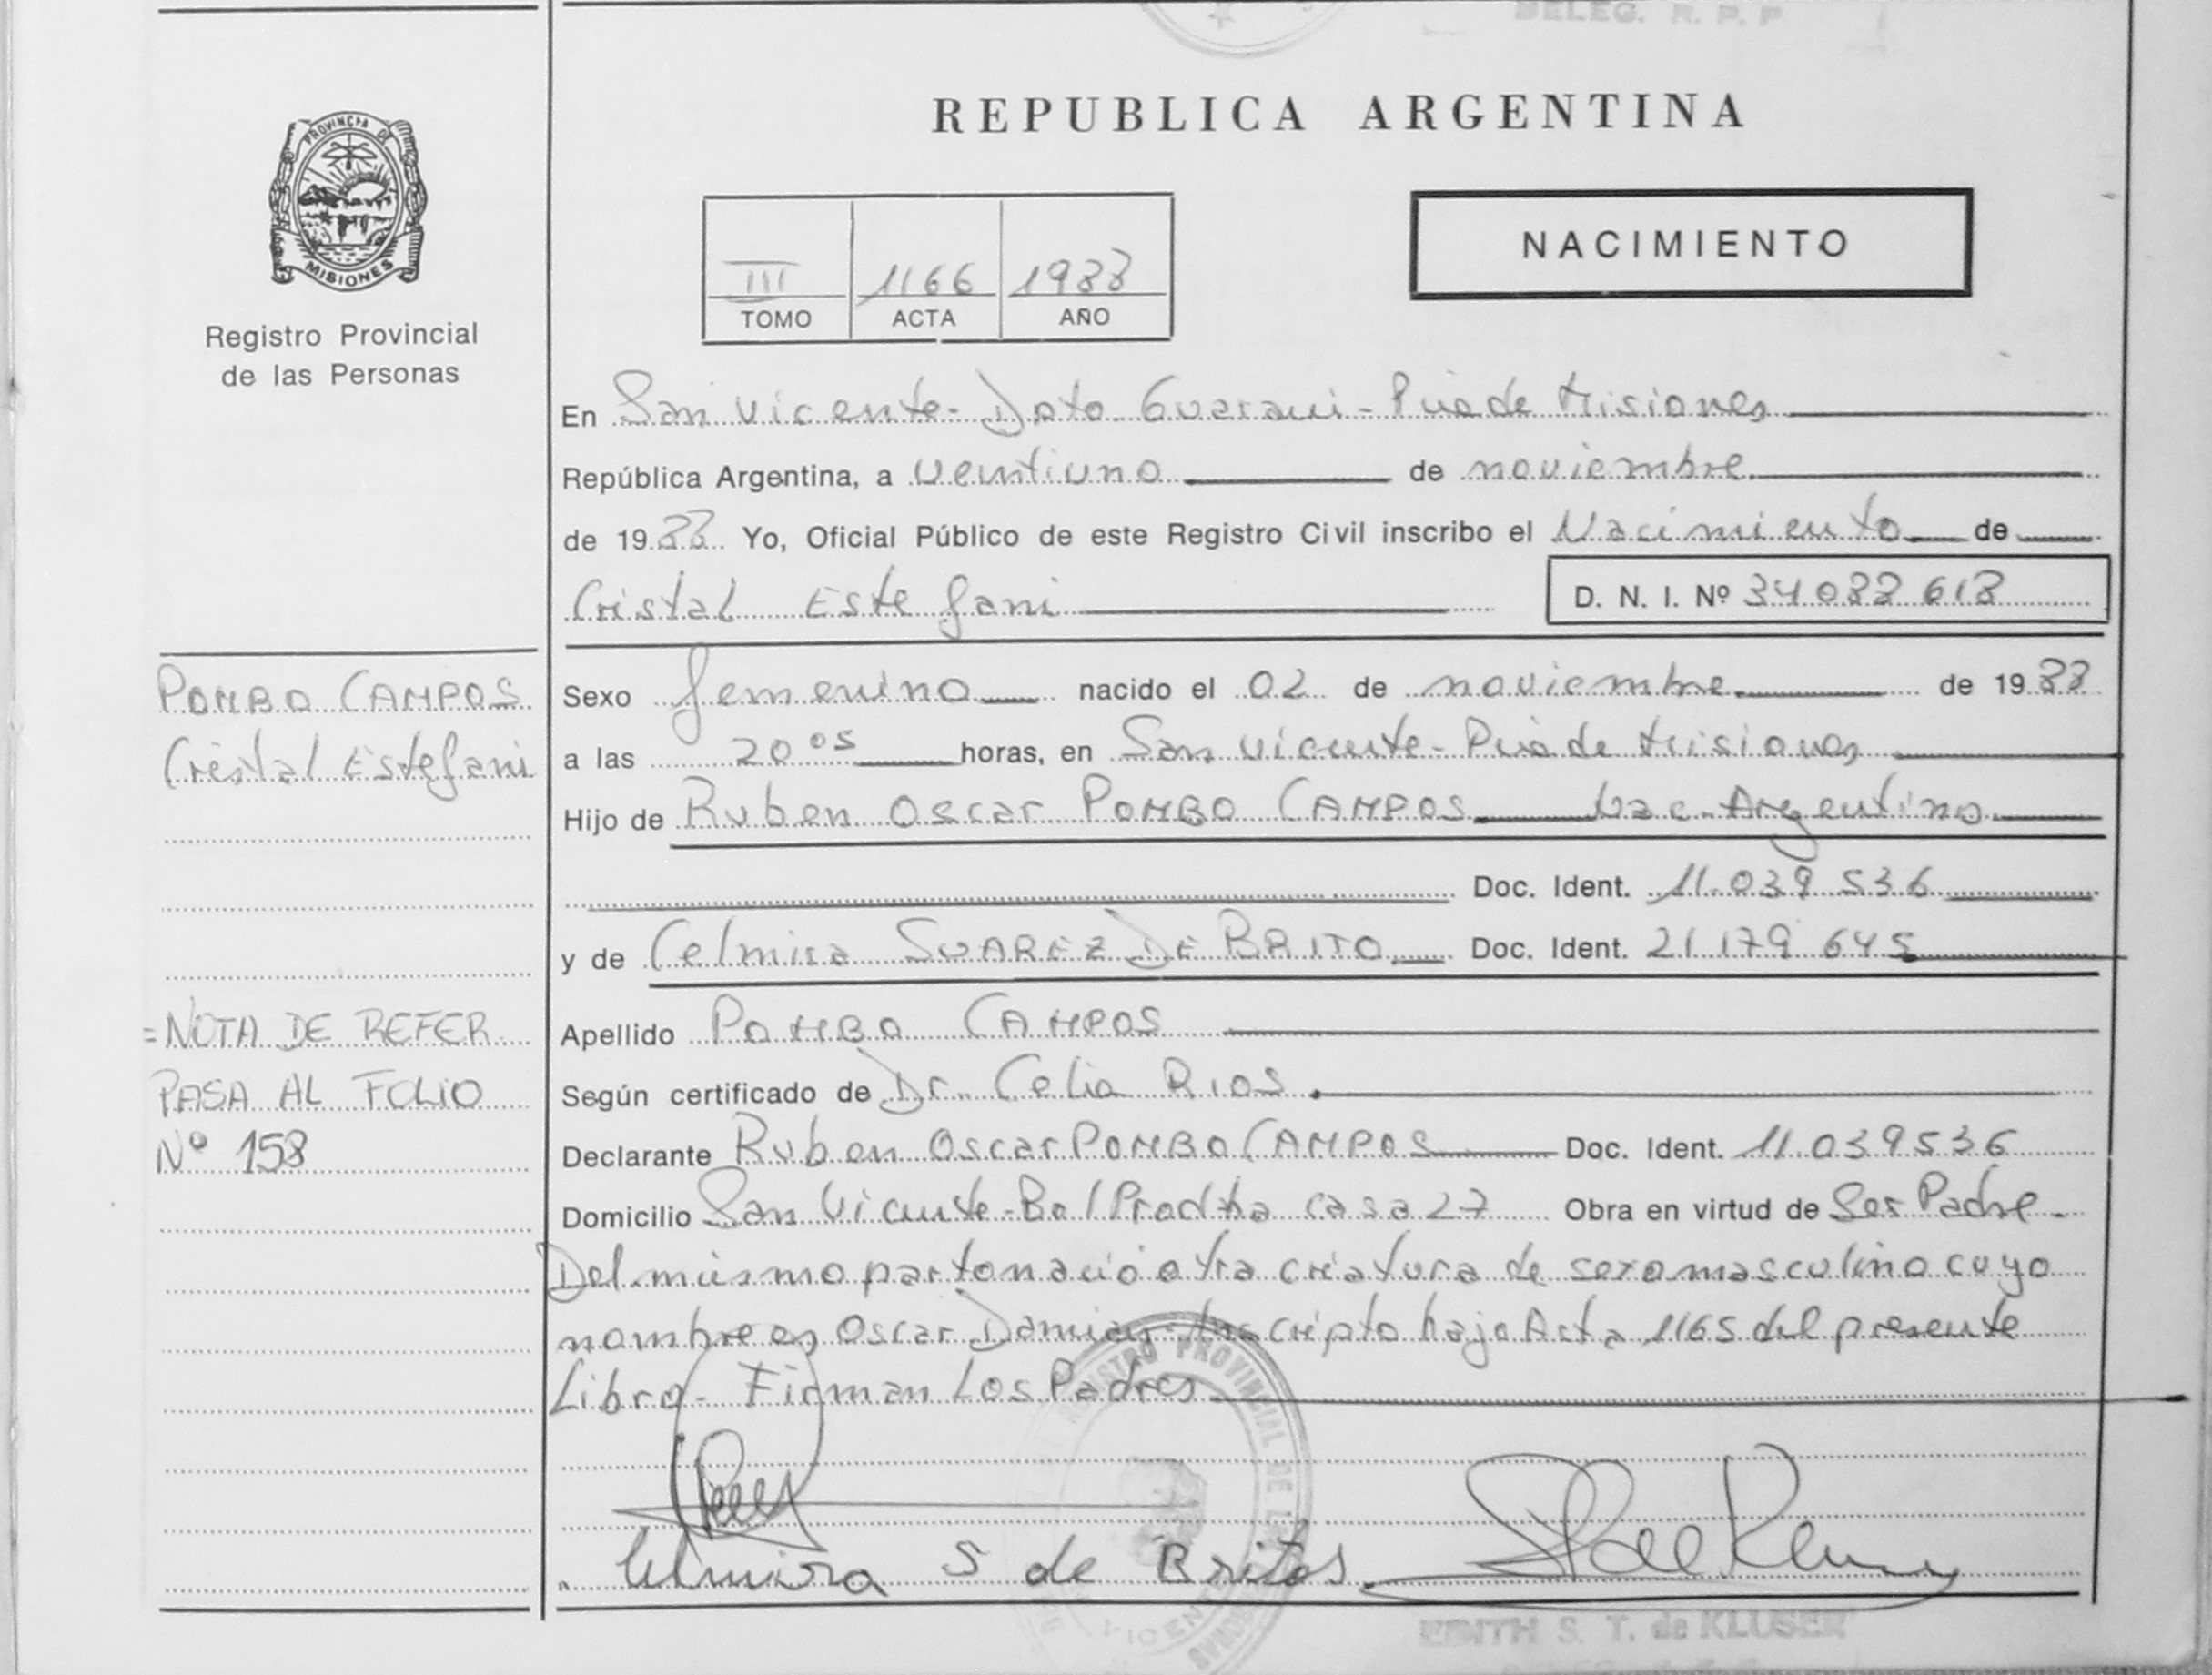 DELEG. R. P. P.
REPUBLICA ARGENTINA
PROVINCIA DE
MISIONES
Registro Provincial
de las Personas
III 1166 1988
TOMO ACTA AÑO
NACIMIENTO
En San Vicente - Dpto Guarani - Pcia de Misiones
República Argentina, a veintiuno de noviembre
de 1988 Yo, Oficial Público de este Registro Civil inscribo el Nacimiento de
Cristal Estefani D. N. I. Nº 34 088 618
POMBO CAMPOS
Cristal Estefani
Sexo femenino nacido el 02 de noviembre de 1988
a las 20 05 horas, en San Vicente - Pcia de Misiones
Hijo de Ruben Oscar POMBO CAMPOS Nac. Argentino
Doc. Ident. 11.039 536
y de Celmira SUAREZ DE BRITO Doc. Ident. 21 179 645
=NOTA DE REFER
PASA AL FOLIO
Nº 158
Apellido POMBO CAMPOS
Según certificado de Dr. Celia RIOS.
Declarante Ruben Oscar POMBO CAMPOS Doc. Ident. 11.039536
Domicilio San Vicente - Bo casa 27 Obra en virtud de Ser Padre.
Del mismo parto nació otra criatura de sexo masculino cuyo
nombre es Oscar Damian - Inscripto bajo Acta 1165 del presente
Libro - Firman Los Padres
REGISTRO PROVINCIAL DE LAS
Celmira S de Britos
EDITH S. T. de KLUSER